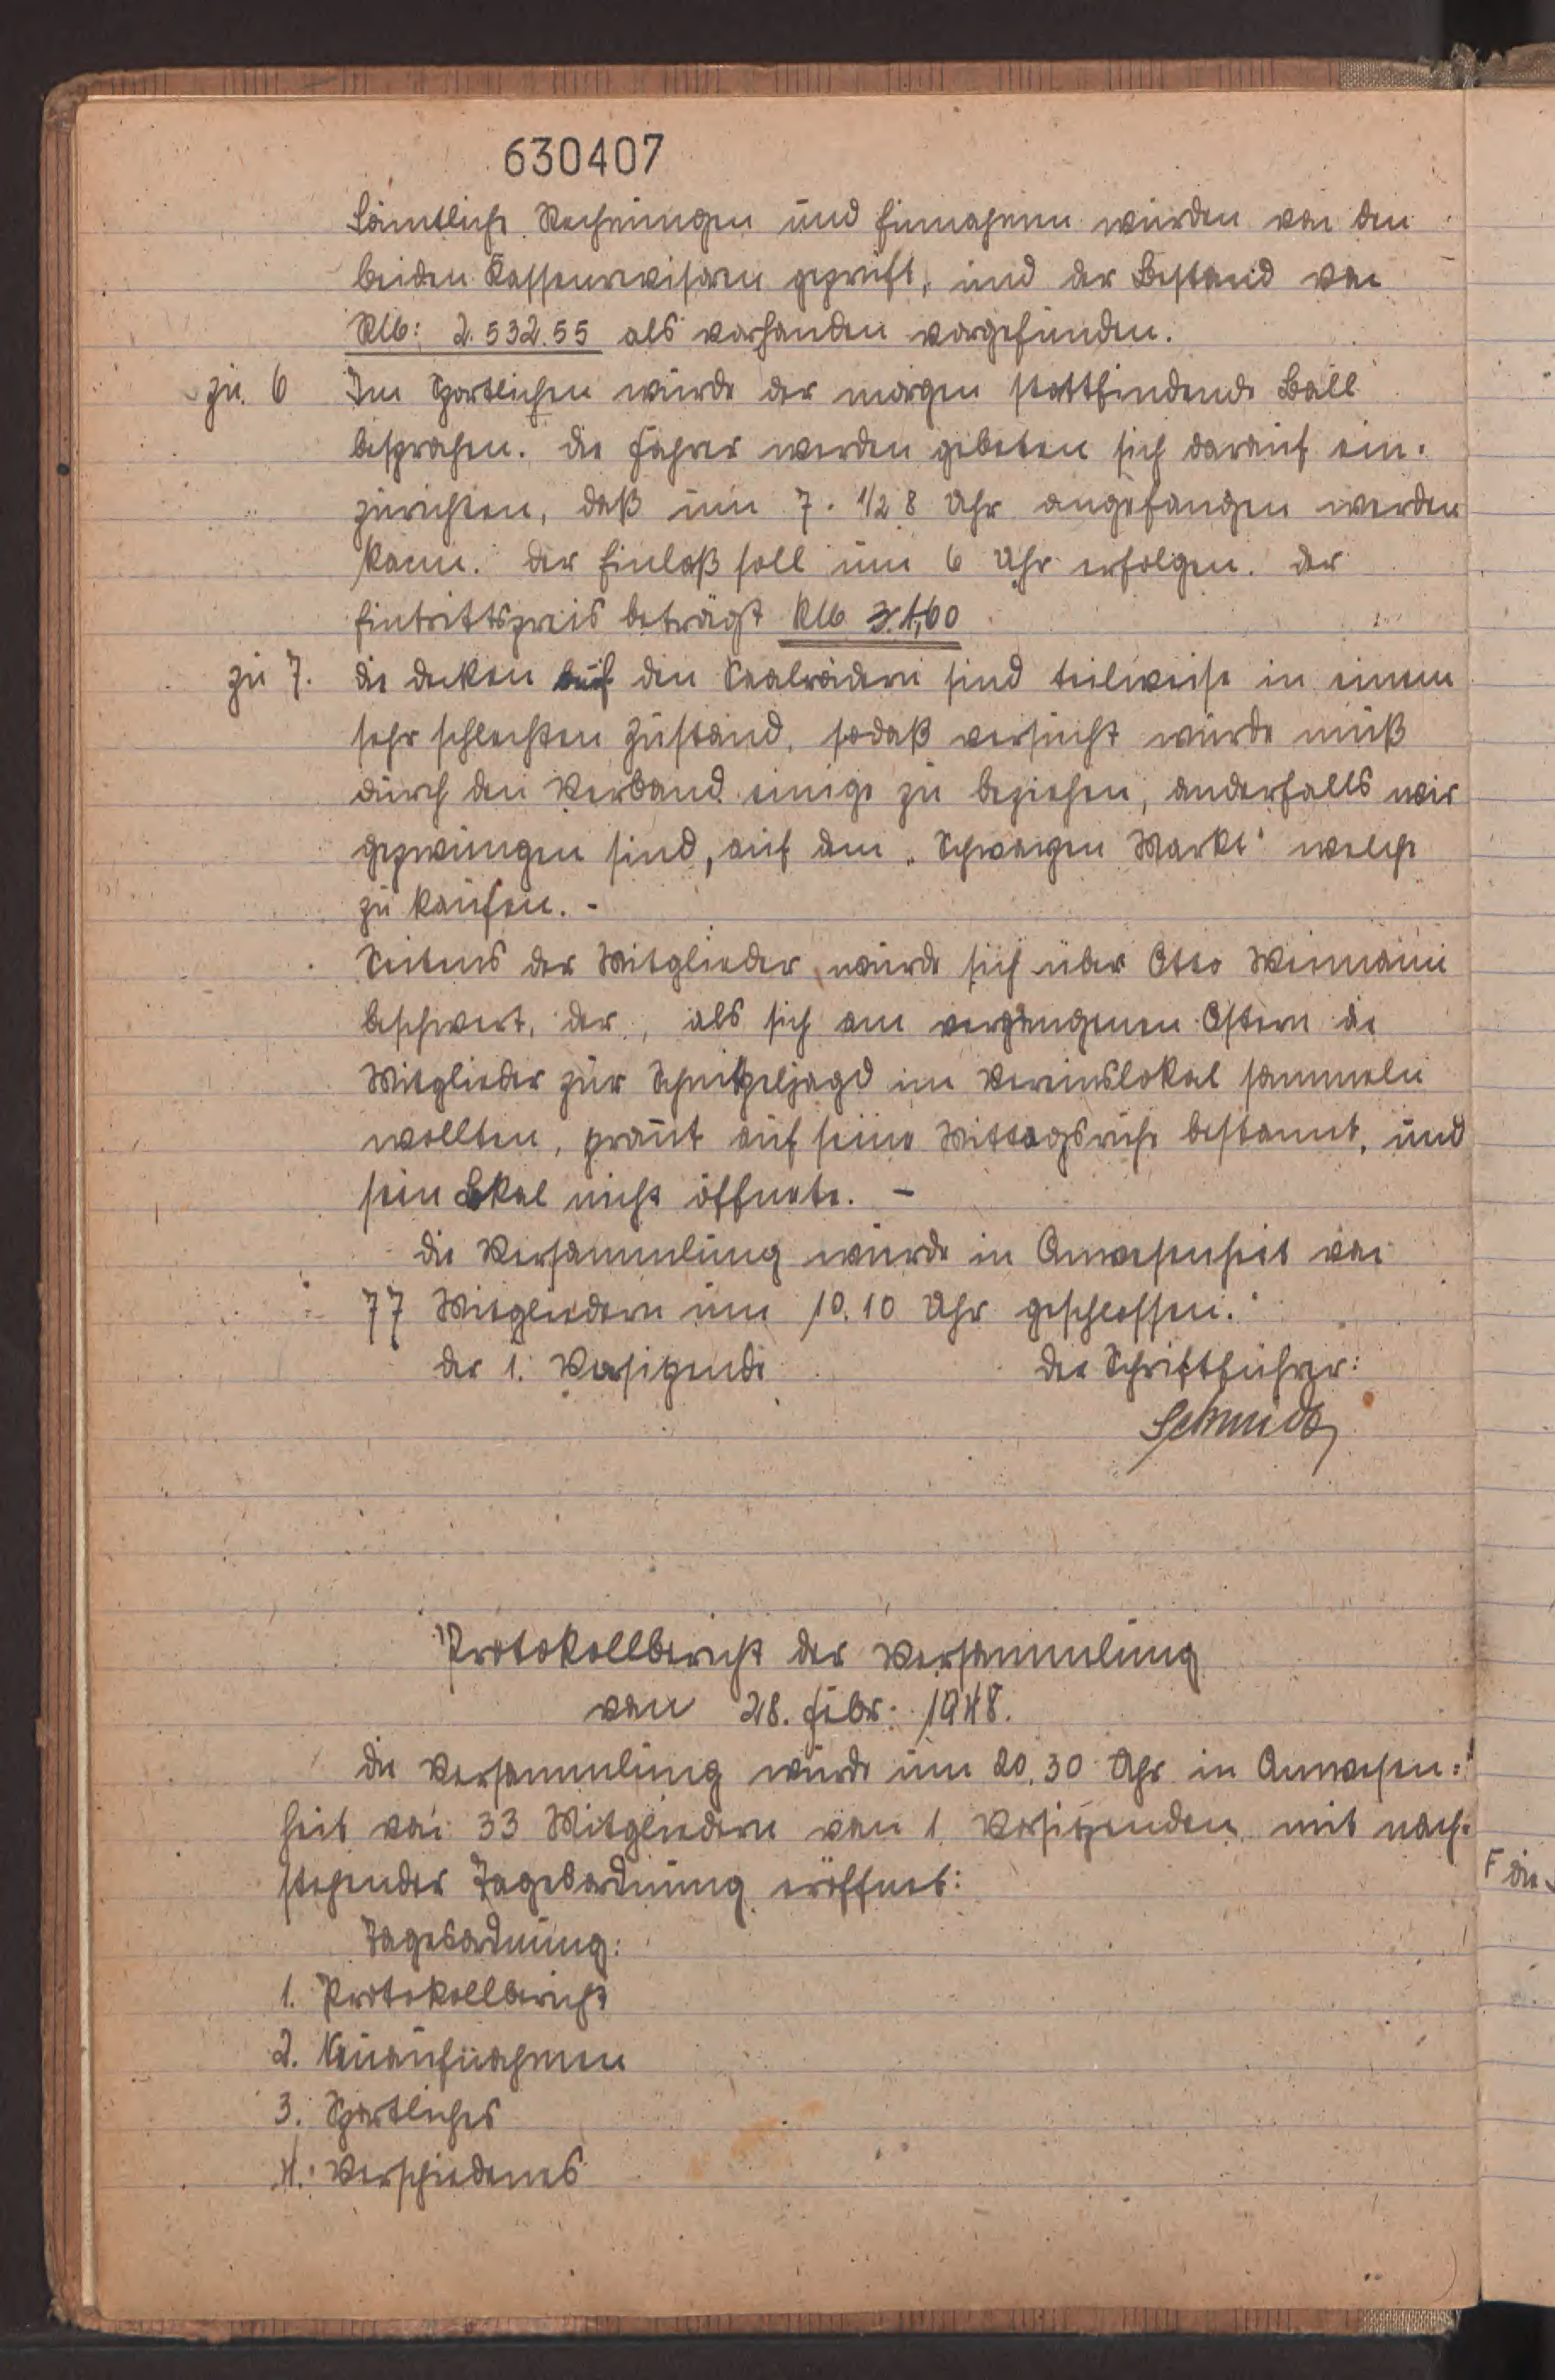 630407
Sämtliche Rechnungen und Einnahmen wurden von den
beiden Kassenrevisoren geprüft, und der Bestand von
RM: 2.532.55 als vorhanden vorgefunden.
zu 6 Im Sportlichen wurde der morgen stattfindende Ball
besprochen. Die Fahrer werden gebeten sich darauf ein-
zurichten, daß um 7 - 1/2 8 Uhr angefangen werden
kann. Der Einlaß soll um 6 Uhr erfolgen. Der
Eintrittspreis beträgt RM 1,60
zu 7. Die Decken auf den Saalrädern sind teilweise in einem
sehr schlechten Zustand, sodaß versucht wurde muß
durch den Verband einige zu beziehen, anderfalls wir
gezwungen sind, auf dem „Schwarzen Markt" welche
zu kaufen. -
Seitens der Mitglieder wurde sich über Otto Weimann
beschwert, der, als sich am vergangenen Ostern die
Mitglieder zur Schnitzeljagd im Vereinslokal sammeln
wollten, prannt auf seine Mittagsruhe bestannt, und
sein Lokal nicht öffnete. -
Die Versammlung wurde in Anwesenheit von
77 Mitgliedern um 10.10 Uhr geschlossen.
Der 1. Vorsitzende Der Schriftführer:
Schmidt
Protokollbericht der Versammlung
vom 28. Febr. 1948.
Die Versammlung wurde um 20.30 Uhr in Anwesen-
heit von 33 Mitgliedern vom 1. Vorsitzenden mit nach-
stehender Tagesordnung eröffnet:
Tagesordnung:
1. Protokollbericht
2. Neuaufnahmen
3. Sportliches
4. Verschiedenes
F die